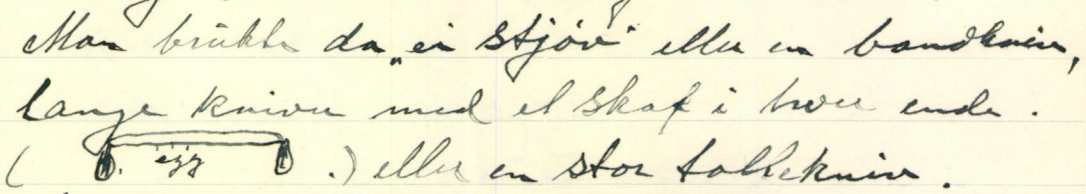 Man brükte da „ei stjöv" eller en bandkniv,
lange kniver med et skaft i hver ende.
( egg .) eller en stor tollekniv.